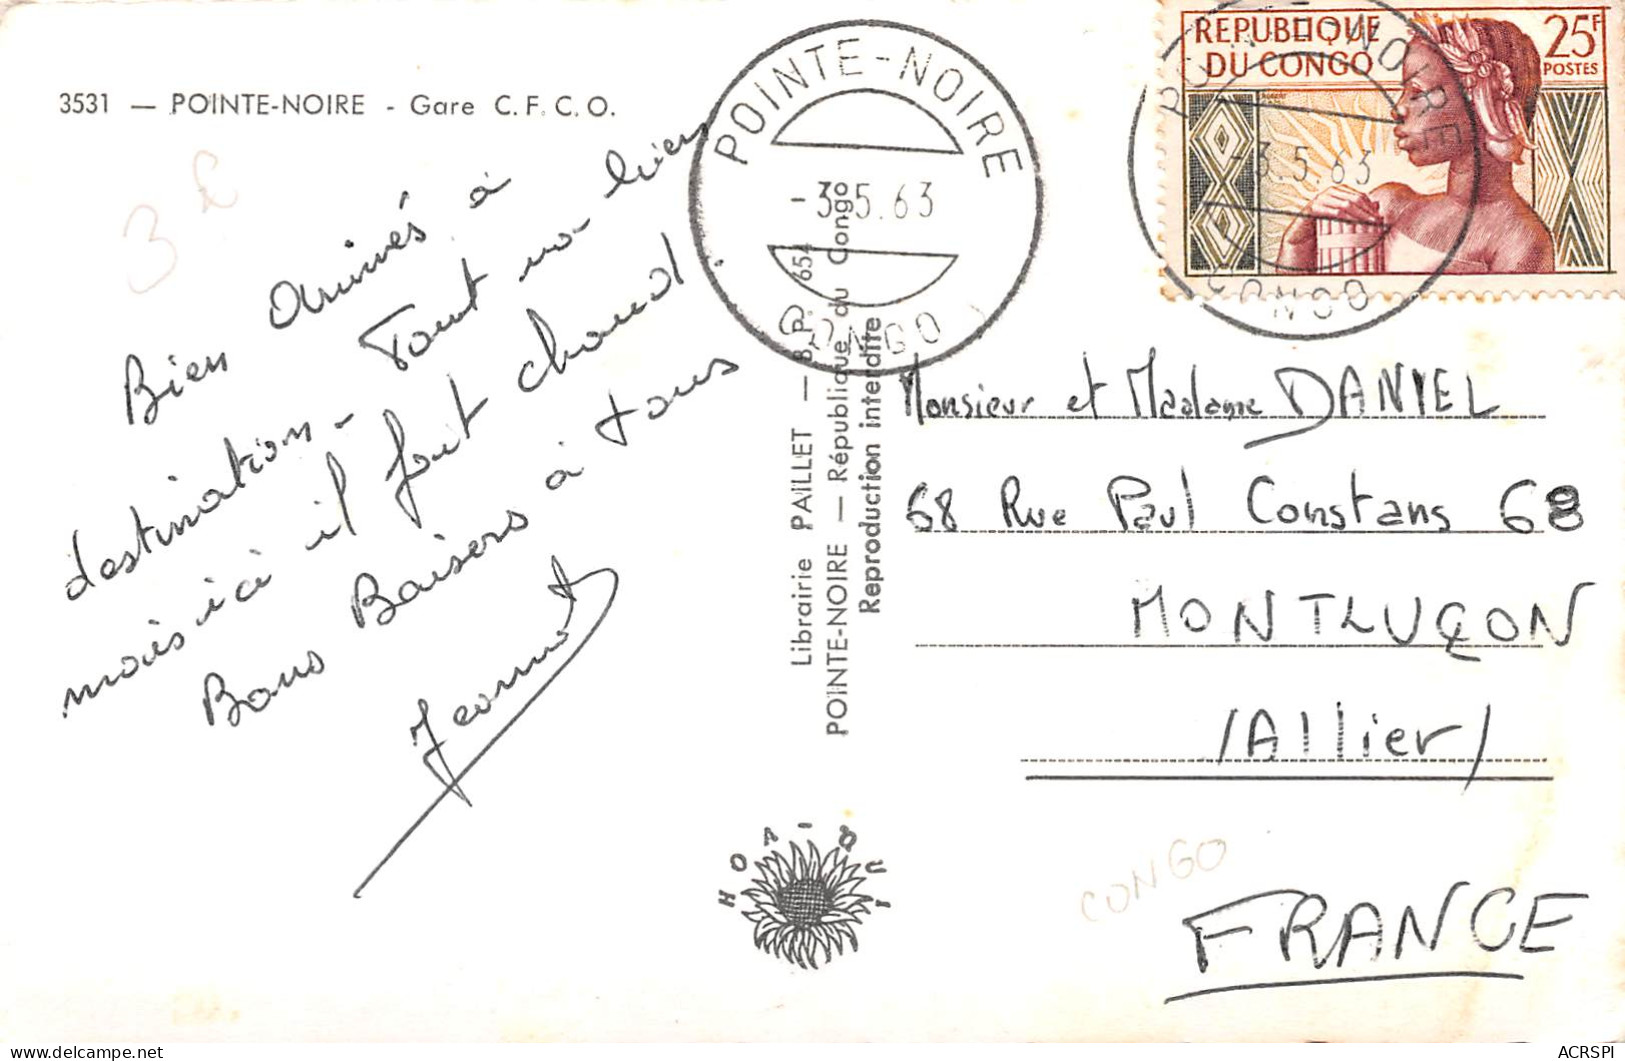 3531 — POINTE-NOIRE - Gare C.F.C.O.
3 £
Bien arrivés à
destination - Tout va bien
mais ici il fait chaud.
Bons Baisers à tous
Jeannot
POINTE-NOIRE
-3.5.63
CONGO
REPUBLIQUE
DU CONGO
25F
POSTES
POINTE-NOIRE
-3.5.63
CONGO
Librairie PAILLET — B.P. 654
POINTE-NOIRE — République du Congo
Reproduction interdite
Monsieur et Madame DANIEL
68 Rue Paul Constans 68
MONTLUÇON
(Allier)
CONGO
FRANCE
HOTIQUI
ACRSPI